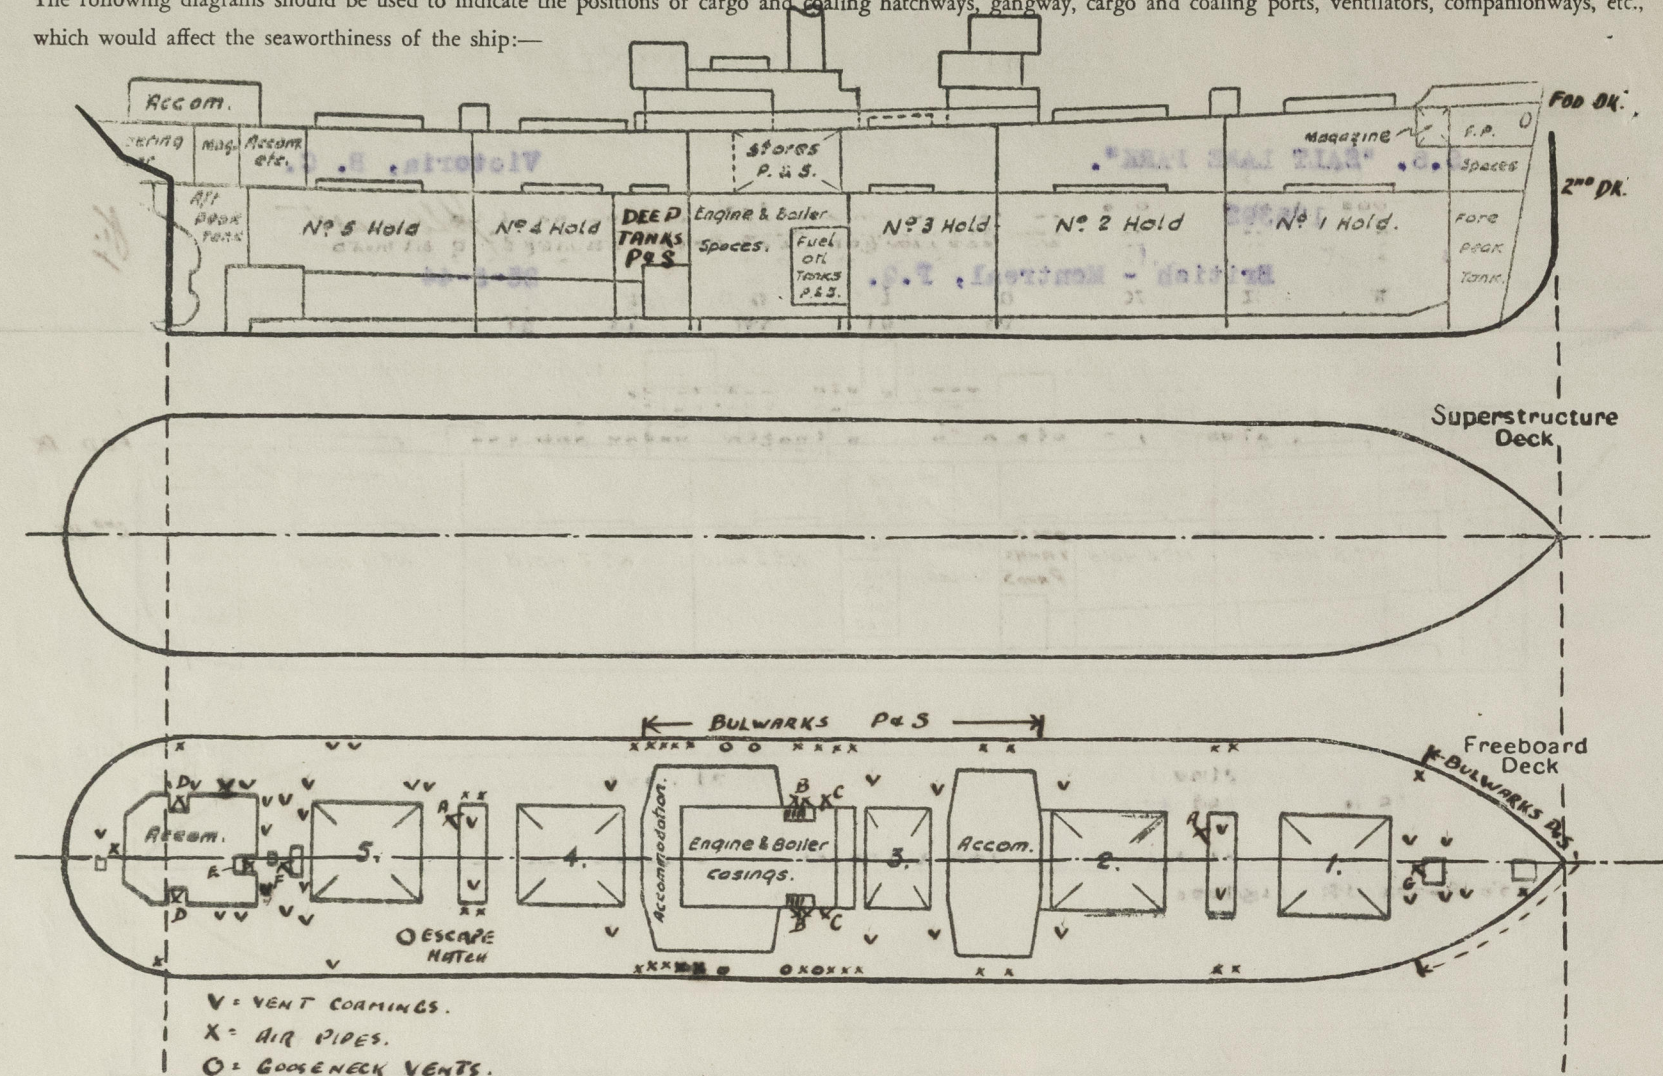 The following diagrams should be used to indicate the positions of cargo and coaling hatchways, gangway, cargo and coaling ports, ventilators, companionways, etc.,
which would affect the seaworthiness of the ship:—
Accom.
FBD DK.
Mag.
Accom. etc.
Stores P. & S.
Magazine
F.P.
Spaces
2ND DK.
Aft Peak Tank
No 5 Hold
No 4 Hold
DEEP TANKS P&S
Engine & Boiler Spaces.
Fuel Oil Tanks P.&S.
No 3 Hold
No 2 Hold
No 1 Hold.
Fore Peak Tank.
S.S. "SALT LAKE PARK".
Victoria, B. C.
British - Montreal, P.Q.
Superstructure
Deck
BULWARKS P&S
Freeboard
Deck
BULWARKS P&S
Accom.
5.
4.
Accommodation.
Engine & Boiler
Casings.
3.
Accom.
2.
1.
A
A
B
C
B
C
D
D
E
F
G
ESCAPE
HATCH
V = VENT COAMINGS.
X = AIR PIPES.
O = GOOSENECK VENTS.